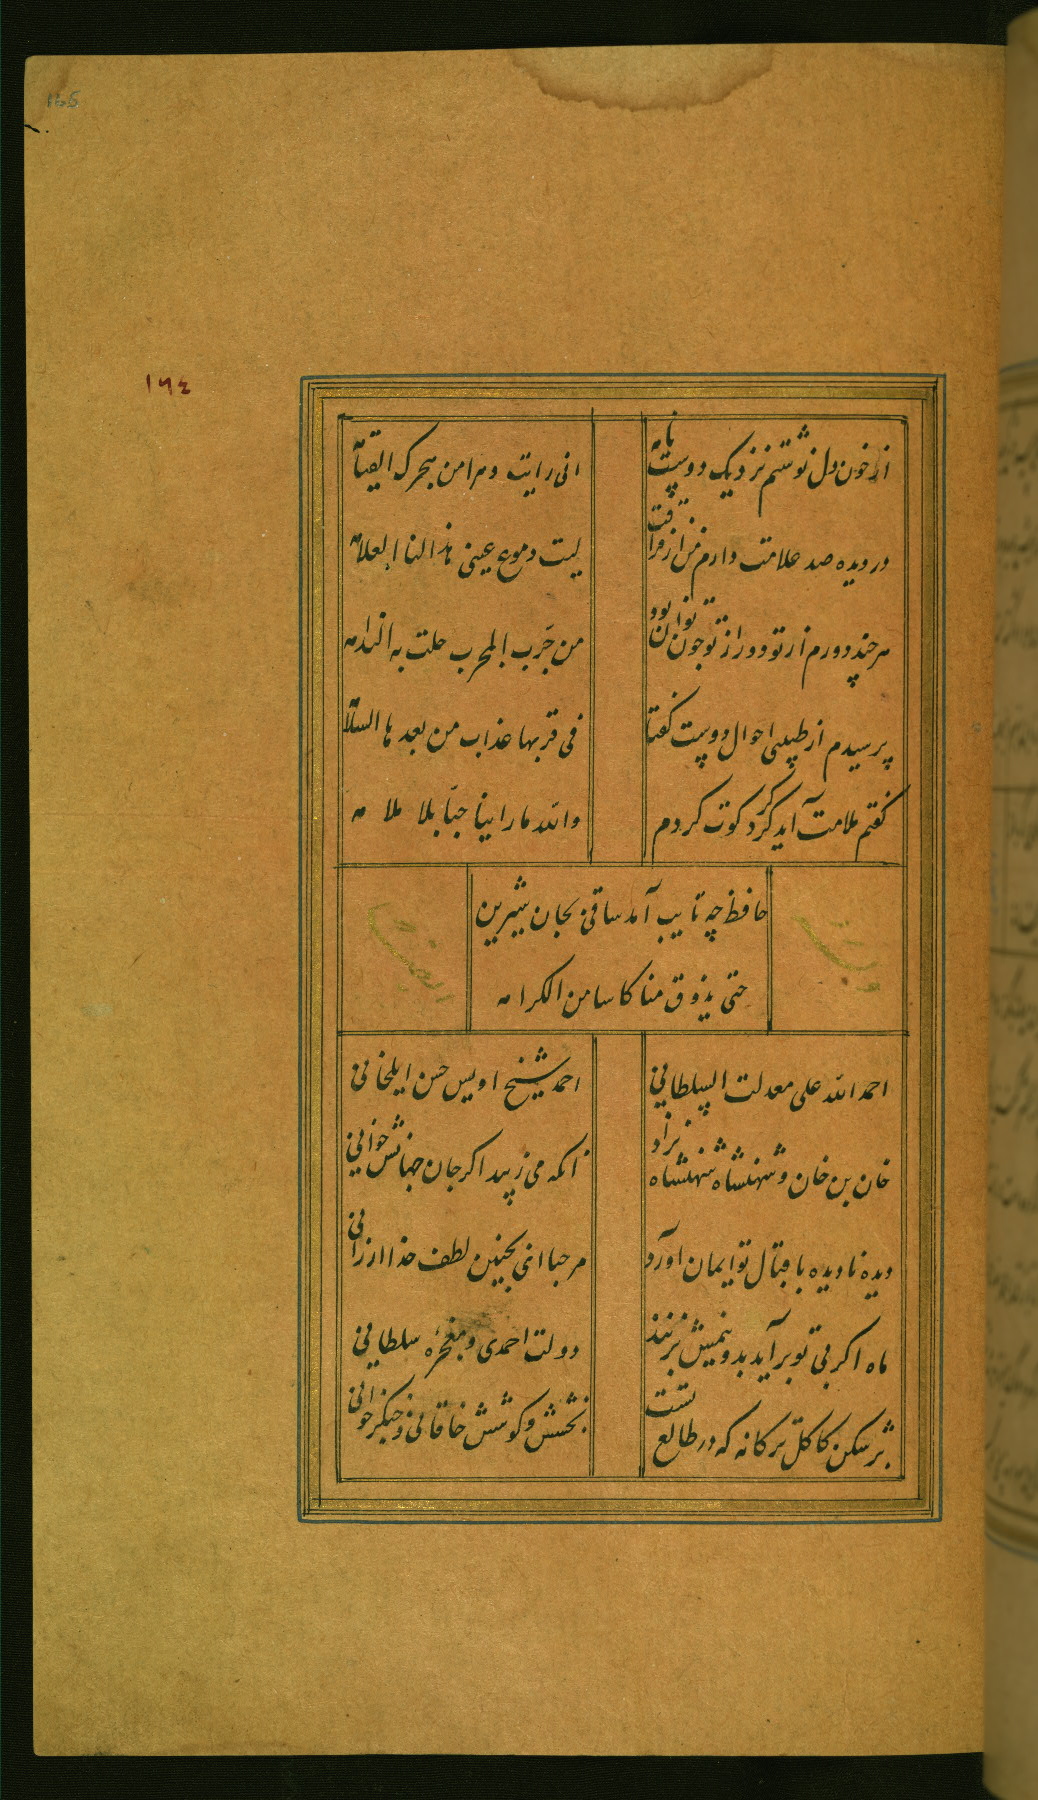 165
١٦٤
از خون دل نوشتم نزدیک دوست نامه
انی رایت دهرا من هجرک القیامه
در دیده صد علامت دارم من از فراقت
لیت دموع عینی هذا لنا العلامه
هرچند دورم از تو و دور از تو چون توان بود
من جرب المجرب حلت به الندامه
پرسیدم از طبیبی احوال دوست کفتا
فی قربها عذاب من بعدها السلامه
کفتم ملامت آید کر کرد کوت کردم
والله ما راینا حبا بلا ملامه
حافظ چه تایب آمد ساقی بجان شیرین
حتی یذوق منا کاسا من الکرامه
احمد الله علی معدلت السلطانی
احمد شیخ اویس حسن ایلخانی
خان بن خان و شهنشاه شهنشاه نژاد
آنکه می زیبد اکر جان جهانش خوانی
دیده نادیده باقبال تو ایمان اورد
مرحبا ای بچنین لطف خدا ارزانی
ماه اکر بی تو براید بدو نیمش بزنند
دولت احمدی و معجزه سلطانی
برشکن کاکل ترکانه که در طالع تست
بخشش و کوشش خاقانی و چنکزخوانی